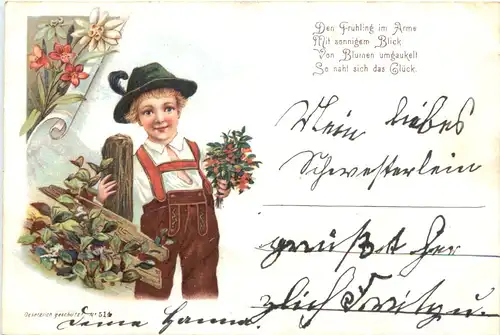 Den Frühling im Arme
Mit sonnigem Blick
Von Blumen umgaukelt
So naht sich das Glück.
Mein liebes
Schwesterlein
grüßt her
zlich
Gesetzlich geschützt Nº 514
deine Hanna.